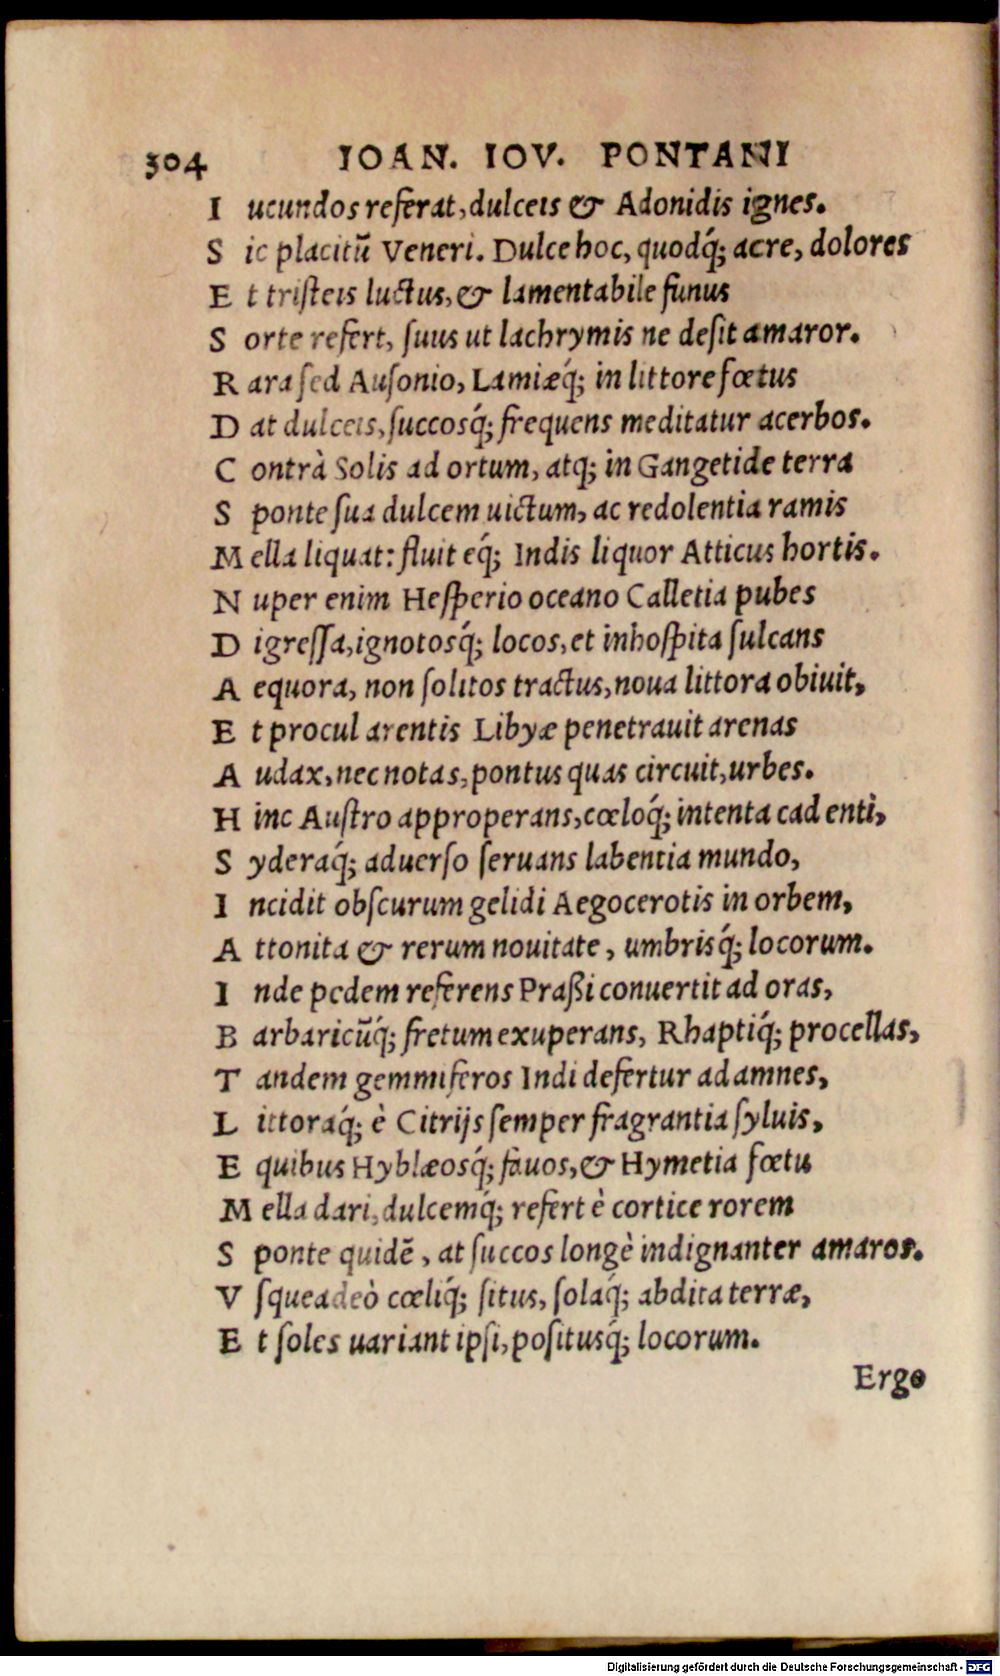 304 IOAN. IOV. PONTANI
I ucundos referat, dulceis & Adonidis ignes.
S ic placitū Veneri. Dulce hoc, quodq́; acre, dolores
E t tristeis luctus, & lamentabile funus
S orte refert, suus ut lachrymis ne desit amaror.
R ara sed Ausonio, Lamiæq́; in littore fœtus
D at dulceis, succosq́; frequens meditatur acerbos.
C ontrà Solis ad ortum, atq; in Gangetide terra
S ponte sua dulcem uictum, ac redolentia ramis
M ella liquat: fluit eq́; Indis liquor Atticus hortis.
N uper enim Hesperio oceano Calletia pubes
D igressa, ignotosq́; locos, et inhospita sulcans
A equora, non solitos tractus, noua littora obiuit,
E t procul arentis Libyæ penetrauit arenas
A udax, nec notas, pontus quas circuit, urbes.
H inc Austro approperans, cœloq́; intenta cadenti,
S yderaq́; aduerso seruans labentia mundo,
I ncidit obscurum gelidi Aegocerotis in orbem,
A ttonita & rerum nouitate, umbrisq́; locorum.
I nde pedem referens Praßi conuertit ad oras,
B arbaricūq́; fretum exuperans, Rhaptiq́; procellas,
T andem gemmiferos Indi defertur ad amnes,
L ittoraq́; è Citrijs semper fragrantia syluis,
E quibus Hyblæosq́; fauos, & Hymetia fœtu
M ella dari, dulcemq́; refert è cortice rorem
S ponte quidē, at succos longè indignanter amaros.
V squeadeò cœliq́; situs, solaq́; abdita terræ,
E t soles uariant ipsi, positusq́; locorum.
Ergo
Digitalisierung gefördert durch die Deutsche Forschungsgemeinschaft - DFG